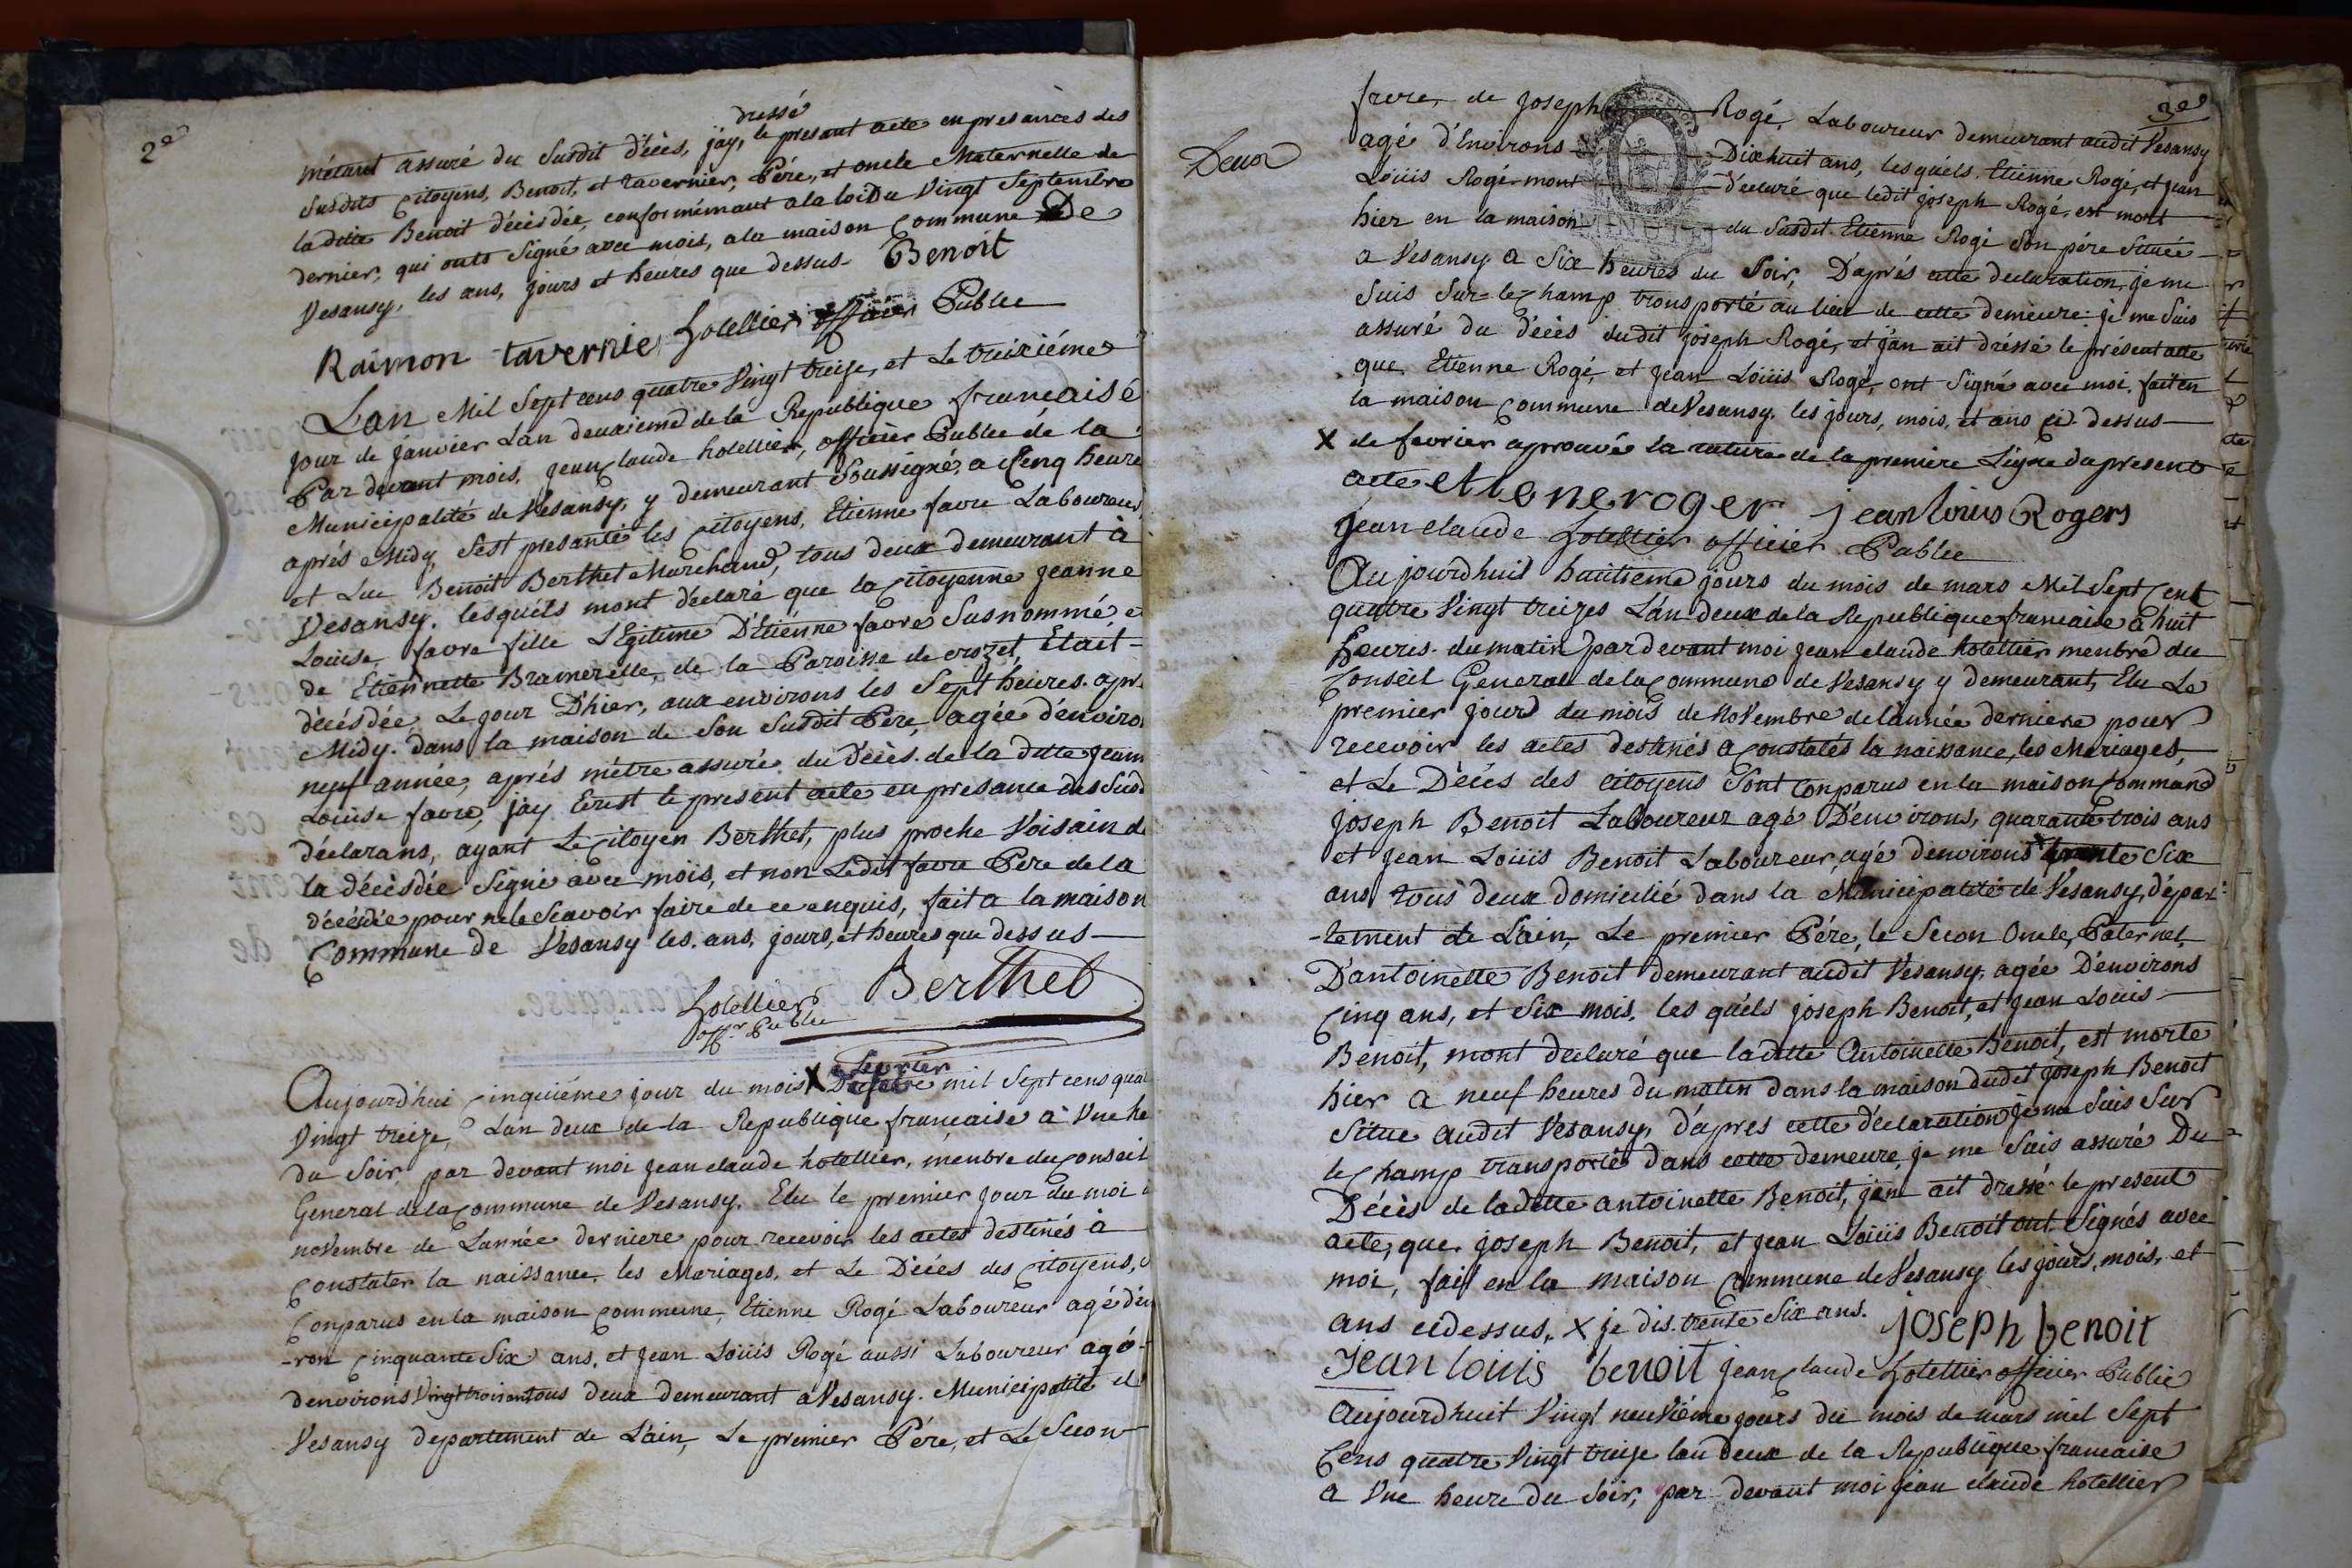 2e
dressé
métant assuré du Susdit d'écès, j'ay, le présant acte en presances des
Susdits Citoyens, Benoit, et tavernier, Pére, et oncle Maternelle de
ladite Benoit décésdée, conformémant a la loi Du Vingt Septembre
dernier, qui onts Signé avec mois, a la maison Commune De
Vesansy, les ans, jours et heures que dessus- Benoit
Raimon tavernie hotellier officier Public
L'an Mil Sept cens quatre Vingt treize, et Le treiziéme
jour de janvier Lan deuxieme de la Republique francaise
Par devant mois, jean Claude hotellier, officier Public de la
Municipalité de Vesansy, y demeurant Soussigné, a Cinq heure
aprés Midy, S'est presanté les Citoyens, Etienne favre Laboureur,
et Luc Benoit Berthet Marchand, tous deux demeurant à
Vesansy. lesquéls mont déclaré que la Citoyenne jeanne
Louise favre fille LEgitime D'Etiénne favre Susnommé, e
de Etiennette Bramerelle, de la Paroisse de crozet, Etait-
décésdée, Le jour D'hier, aux environs les Sept heures. apr.
Midy. Dans la maison de Son Susdit Pére, agée d'enviro
neuf année, aprés métre assuré du Décès de la ditte jeann
Louise favre, jay Ecrist le present acte en presance des Susd
déclarans, ayant Le Citoyen Berthet, plus proche Voisain de
la décèsdée Signé avec mois, et non Ledit favre Pére de la
décédée pour ne le Scavoir faire de ce enquis, fait a la maison
Commune de Vesansy les. ans, jours, et heures que dessus-
hotellier Berthet
offr Public
fevrier
Aujourd'hui Cinquiéme jour du mois X mil Sept cens quat
Vingt treize, Lan deux de la Republique francaise a Une he
du Soir, par devant moi jean claude hotellier, membre du Conseil
General de la Commune de Vesansy. Elu le premier jour du moi
novembre de L'année derniere pour recevoir les actes destinés à
Constater la naissance, les Mariages, et Le Décés des Citoyens,
Conparus en la maison Commune, Etienne Rogé Laboureur agé d'en
-ron Cinquante Six ans, et jean Loüis Rogé aussi Laboureur agé-
denvirons Vingt trois ans tous deux demeurant a Vesansy. Municipalité d
Vesansy departement de L'ain, Le premier Pére, et Le Secon
3e
Deux
frere, de joseph Rogé, Laboureur demeurant audit Vesansy
agé d'Environs Dixhuit ans, lesquéls Etienne Rogé, et jean
Loüis Rogé mont d'éclaré que ledit joseph Rogé, est mort
hier en la maison du Susdit Etienne Rogé Son pére Située
a Vesansy a Six heures du Soir, D'aprés cette declaration, je me
Suis Sur-le Champ transporté au lieu de cette demeure. je me Suis
assuré du décès dudit joseph Rogé, et j'an ait dréssé le présent acte
que, Etienne Rogé, et jean Loüis Rogé, ont Signé avec moi, fait en
la maison Commune de Vesansy, les jours, mois, et ans ci dessus-
X de fevrier aprouvé la rature de la premiere Ligne du present
acte etiene roger jean louis Rogers
jean claude hotellier officier Public
Aujourdhuit huitieme jours du mois de mars Mil Sept Cent
quatre Vingt treizes L'an Deux de la Republique francaise a huit
heures. du matin par devant moi jean claude hotellier menbre du
Conseil General de la Commune de Vesansy y demeurant, Elu Le
premier jour du mois de Novembre de l'année derniere pour
recevoir les actes destinés a Constatés la naissance, les Mariages,
et Le Décès des citoyens Sont Conparus en la maison Commune
joseph Benoit Laboureur agé D'environs, quarante trois ans
et jean Loüis Benoit Laboureur, agé denvirons X trente Six
ans tous deux domicilié dans la Municipalité de Vesansy, dépar-
-tement de L'ain, Le premier Pére, le Secon Oncle, Paternel,
D'antoinette Benoit demeurant audit Vesansy, agée D'environs
Cinq ans, et Six mois, les quéls joseph Benoit, et jean Louis-
Benoit, mont declaré que laditte Antoinette Benoit, est morte
hier a neuf heures du matin dans la maison dudit joseph Benoit
Situe audit Vesansy, d'apres cette déclaration je me Suis Sur
le Champ transporté dans cette demeure, je me Suis assuré Du
Décès de laditte antoinette Benoit, j'en ait dressé le present
acte, que, joseph Benoit, et jean Loüis Benoit ont Signés avec
moi, fait en la maison Commune de Vesansy les jours, mois, et
ans cidessus, X je dis trente Six ans. joseph benoit
Jean louis benoit jean Claude hotellier officier Public
Aujourdhuit Vingt neuviéme jours du mois de mars mil Sept
Cens quatre Vingt treize lan Deux de la Republique francaise
a Une heure du Soir, par devant moi jean claude hotellier